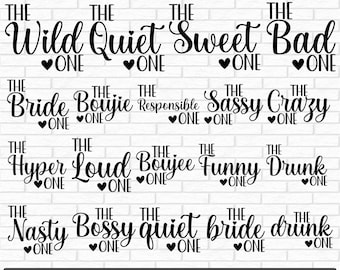 THE THE THE THE
Wild Quiet Sweet Bad
ONE ONE ONE ONE
THE THE THE THE THE
Bride Boujie Responsible Sassy Crazy
ONE ONE ONE ONE ONE
THE THE THE THE THE
Hyper Loud Boujee Funny Drunk
ONE ONE ONE ONE ONE
THE THE THE THE THE
Nasty Bossy quiet bride drunk
ONE ONE ONE ONE ONE